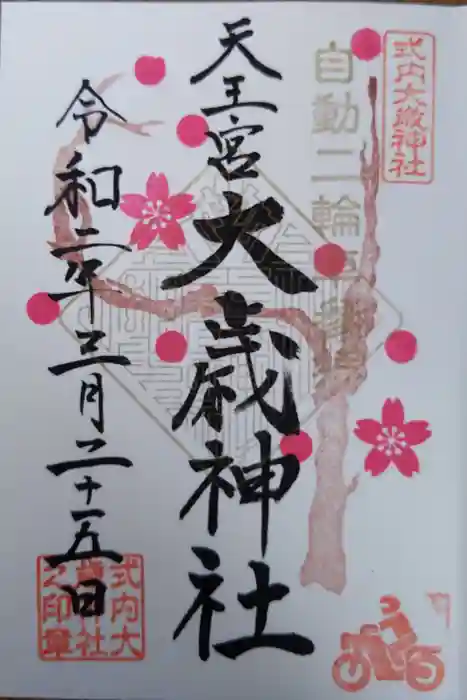 式内大歳神社
自動二輪
天王宮大歳神社
令和二年三月二十五日
式内大
歳神社
之印章